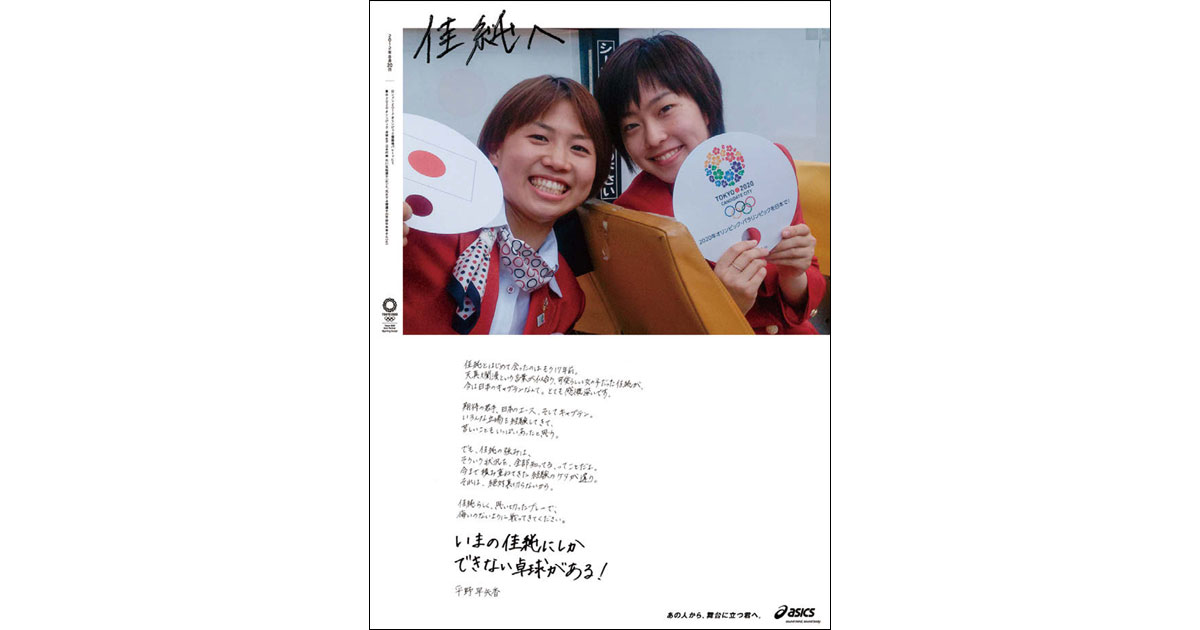 佳純へ
2012年8月20日
TOKYO 2020
CANDIDATE CITY
2020年オリンピック・パラリンピックを日本で!
TOKYO 2020
佳純とはじめて会ったのはもう17年前。
天真爛漫という言葉が似合う、可愛らしい女の子だった佳純が、
今は日本のキャプテンなんて。とても感慨深いです。
期待の若手、日本のエース、そしてキャプテン。
いろんな立場を経験してきて、
苦しいこともいっぱいあったと思う。
でも、佳純の強みは、
そういう状況を、全部知ってる、ってことだよ。
今まで積み重ねてきた経験のケタが違う。
それは、絶対裏切らないから。
佳純らしく、思い切ったプレーで、
悔いのないように戦ってきてください。
いまの佳純にしか
できない卓球がある!
平野早矢香
あの人から、舞台に立つ君へ。
asics
sound mind, sound body